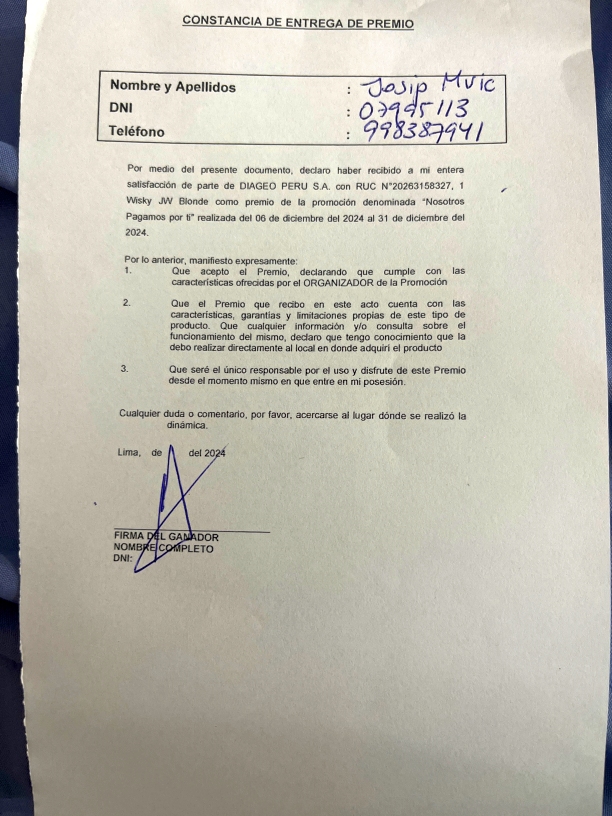 CONSTANCIA DE ENTREGA DE PREMIO
Nombre y Apellidos : Josip Mvic
DNI : 07995113
Teléfono : 998387941
Por medio del presente documento, declaro haber recibido a mi entera
satisfacción de parte de DIAGEO PERU S.A. con RUC N°20263158327, 1
Wisky JW Blonde como premio de la promoción denominada "Nosotros
Pagamos por ti" realizada del 06 de diciembre del 2024 al 31 de diciembre del
2024.
Por lo anterior, manifiesto expresamente:
1. Que acepto el Premio, declarando que cumple con las
características ofrecidas por el ORGANIZADOR de la Promoción
2. Que el Premio que recibo en este acto cuenta con las
características, garantías y limitaciones propias de este tipo de
producto. Que cualquier información y/o consulta sobre el
funcionamiento del mismo, declaro que tengo conocimiento que la
debo realizar directamente al local en donde adquirí el producto
3. Que seré el único responsable por el uso y disfrute de este Premio
desde el momento mismo en que entre en mi posesión.
Cualquier duda o comentario, por favor, acercarse al lugar dónde se realizó la
dinámica.
Lima, de del 2024
FIRMA DEL GANADOR
NOMBRE COMPLETO
DNI: